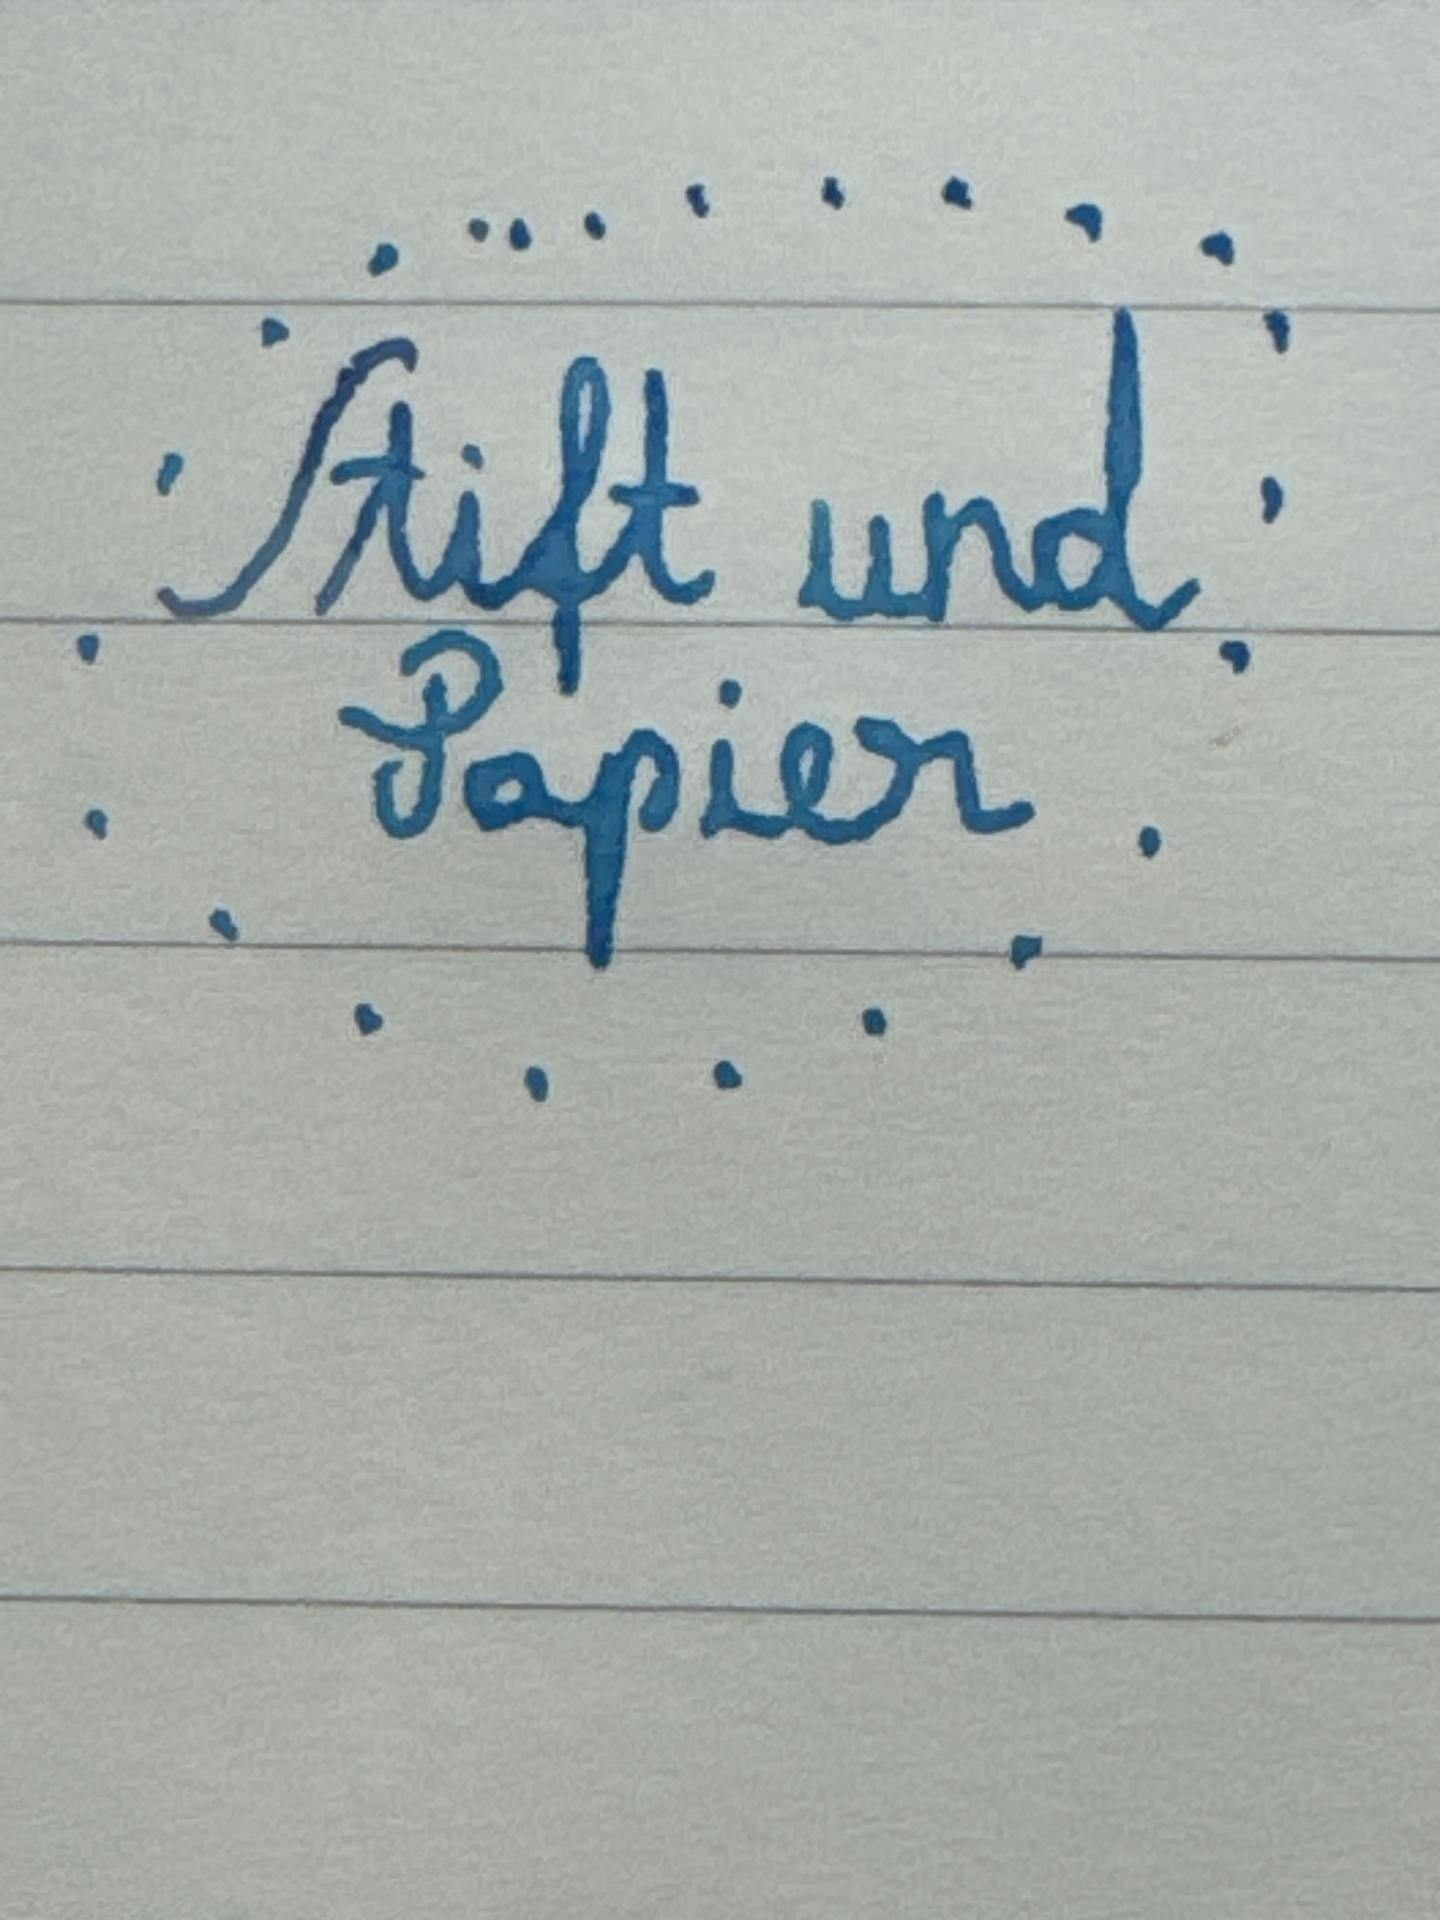 Stift und
Papier